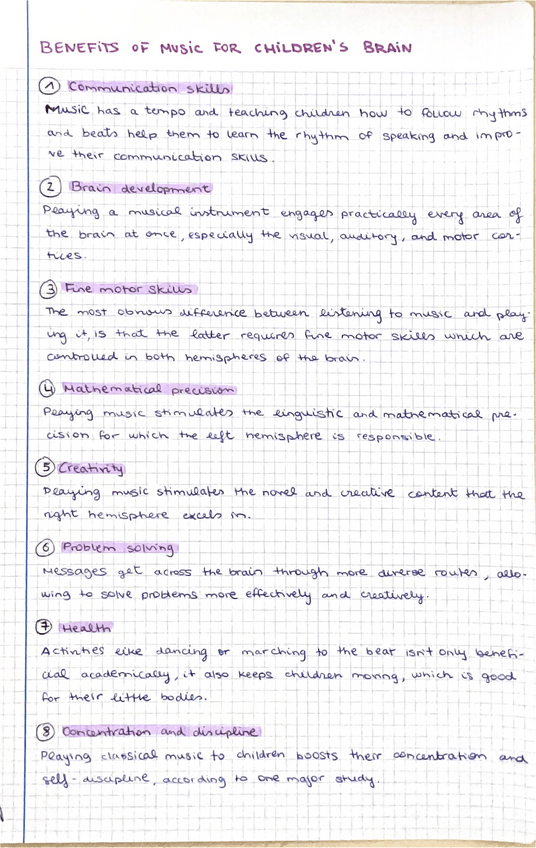 BENEFITS OF MUSIC FOR CHILDREN'S BRAIN
1 Communication skills
Music has a tempo and teaching children how to follow rhythms
and beats help them to learn the rhythm of speaking and impro-
ve their communication skills.
2 Brain development
Playing a musical instrument engages practically every area of
the brain at once, especially the visual, auditory, and motor cor-
tices.
3 Fine motor skills
The most obvious difference between listening to music and play-
ing it, is that the latter requires fine motor skills which are
controlled in both hemispheres of the brain.
4 Mathematical precision
Playing music stimulates the linguistic and mathematical pre-
cision for which the left hemisphere is responsible.
5 Creativity
Playing music stimulates the novel and creative content that the
right hemisphere excels in.
6 Problem solving
Messages get across the brain through more diverse routes, allo-
wing to solve problems more effectively and creatively.
7 Health
Activities like dancing or marching to the beat isn't only benefi-
cial academically, it also keeps children moving, which is good
for their little bodies.
8 Concentration and discipline
Playing classical music to children boosts their concentration and
self-discipline, according to one major study.